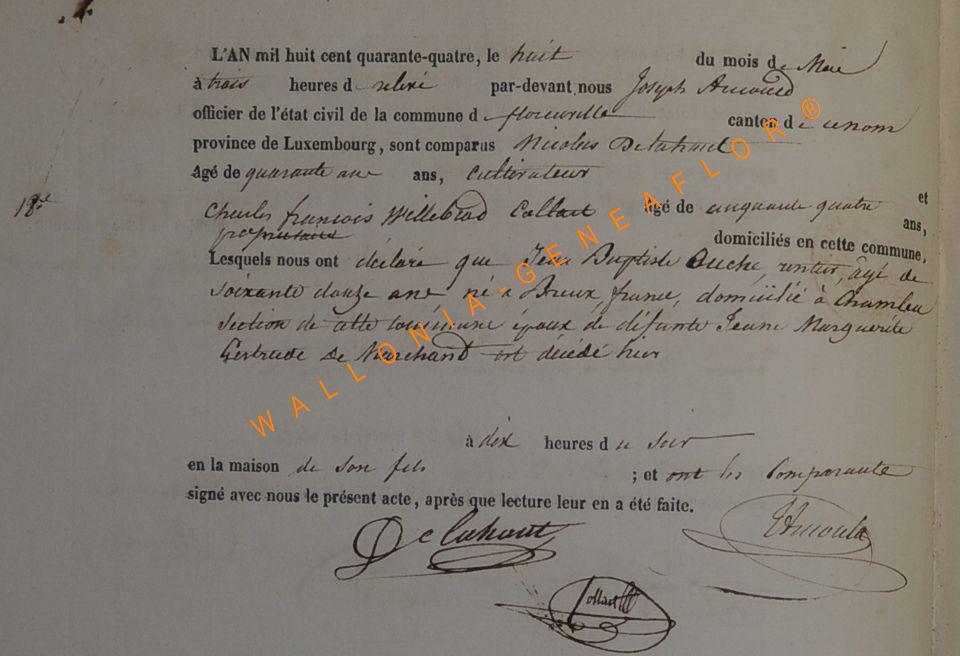 L'AN mil huit cent quarante-quatre, le huit du mois de Mai
à trois heures de relevé par-devant nous Joseph Arnould
officier de l'état civil de la commune de florenville canton de ce nom
province de Luxembourg, sont comparus Nicolas Delahaut
âgé de quarante ans ans, Cultivateur et
18e
Charles françois Willebrod Collart âgé de cinquante quatre ans,
propriétaire domiciliés en cette commune,
Lesquels nous ont déclaré que Jean Baptiste rentier, âgé de
soixante douze ans né à Breux, france, domicilié à Chameleu
Section de cette commune époux de défunte Jeanne Marguerite
Gertrude De Marchand est décédé hier
à dix heures du soir
en la maison de son fils ; et ont les Comparants
signé avec nous le présent acte, après que lecture leur en a été faite.
Delahaut
JArnould
Collart
WALLONIA-GENEAFLOR®